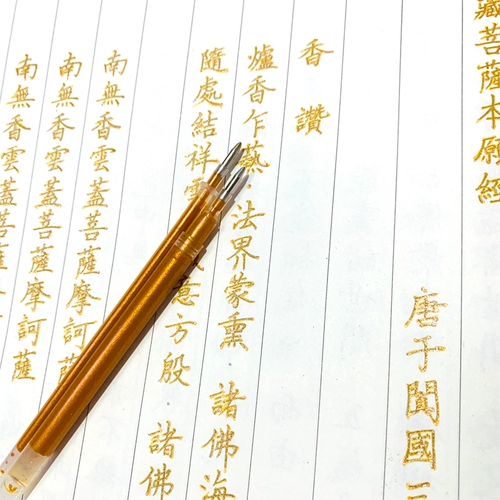 藏菩薩本願經
唐于闐國三
香讚
爐香乍爇 法界蒙熏 諸佛海
隨處結祥雲 意方殷 諸佛
南無香雲蓋菩薩摩訶薩
南無香雲蓋菩薩摩訶薩
南無香雲蓋菩薩